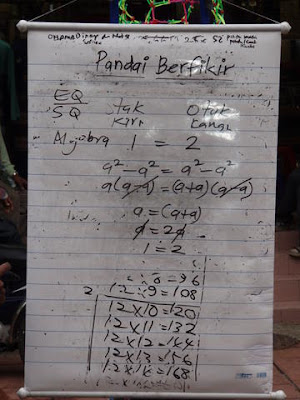 Pandai Berfikir
EQ
SQ
Otak Kiri
Otak Kanan
Algebra 1 = 2
a² - a² = a² - a²
a(a-a) = (a+a)(a-a)
a = (a+a)
a = 2a
1 = 2
8 = 96
12 × 9 = 108
12 × 10 = 120
12 × 11 = 132
12 × 12 = 144
12 × 13 = 156
12 × 14 = 168